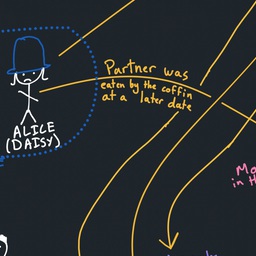 Partner was
eaten by the coffin
at a later date
ALICE
(DAISY)
Mo
in th